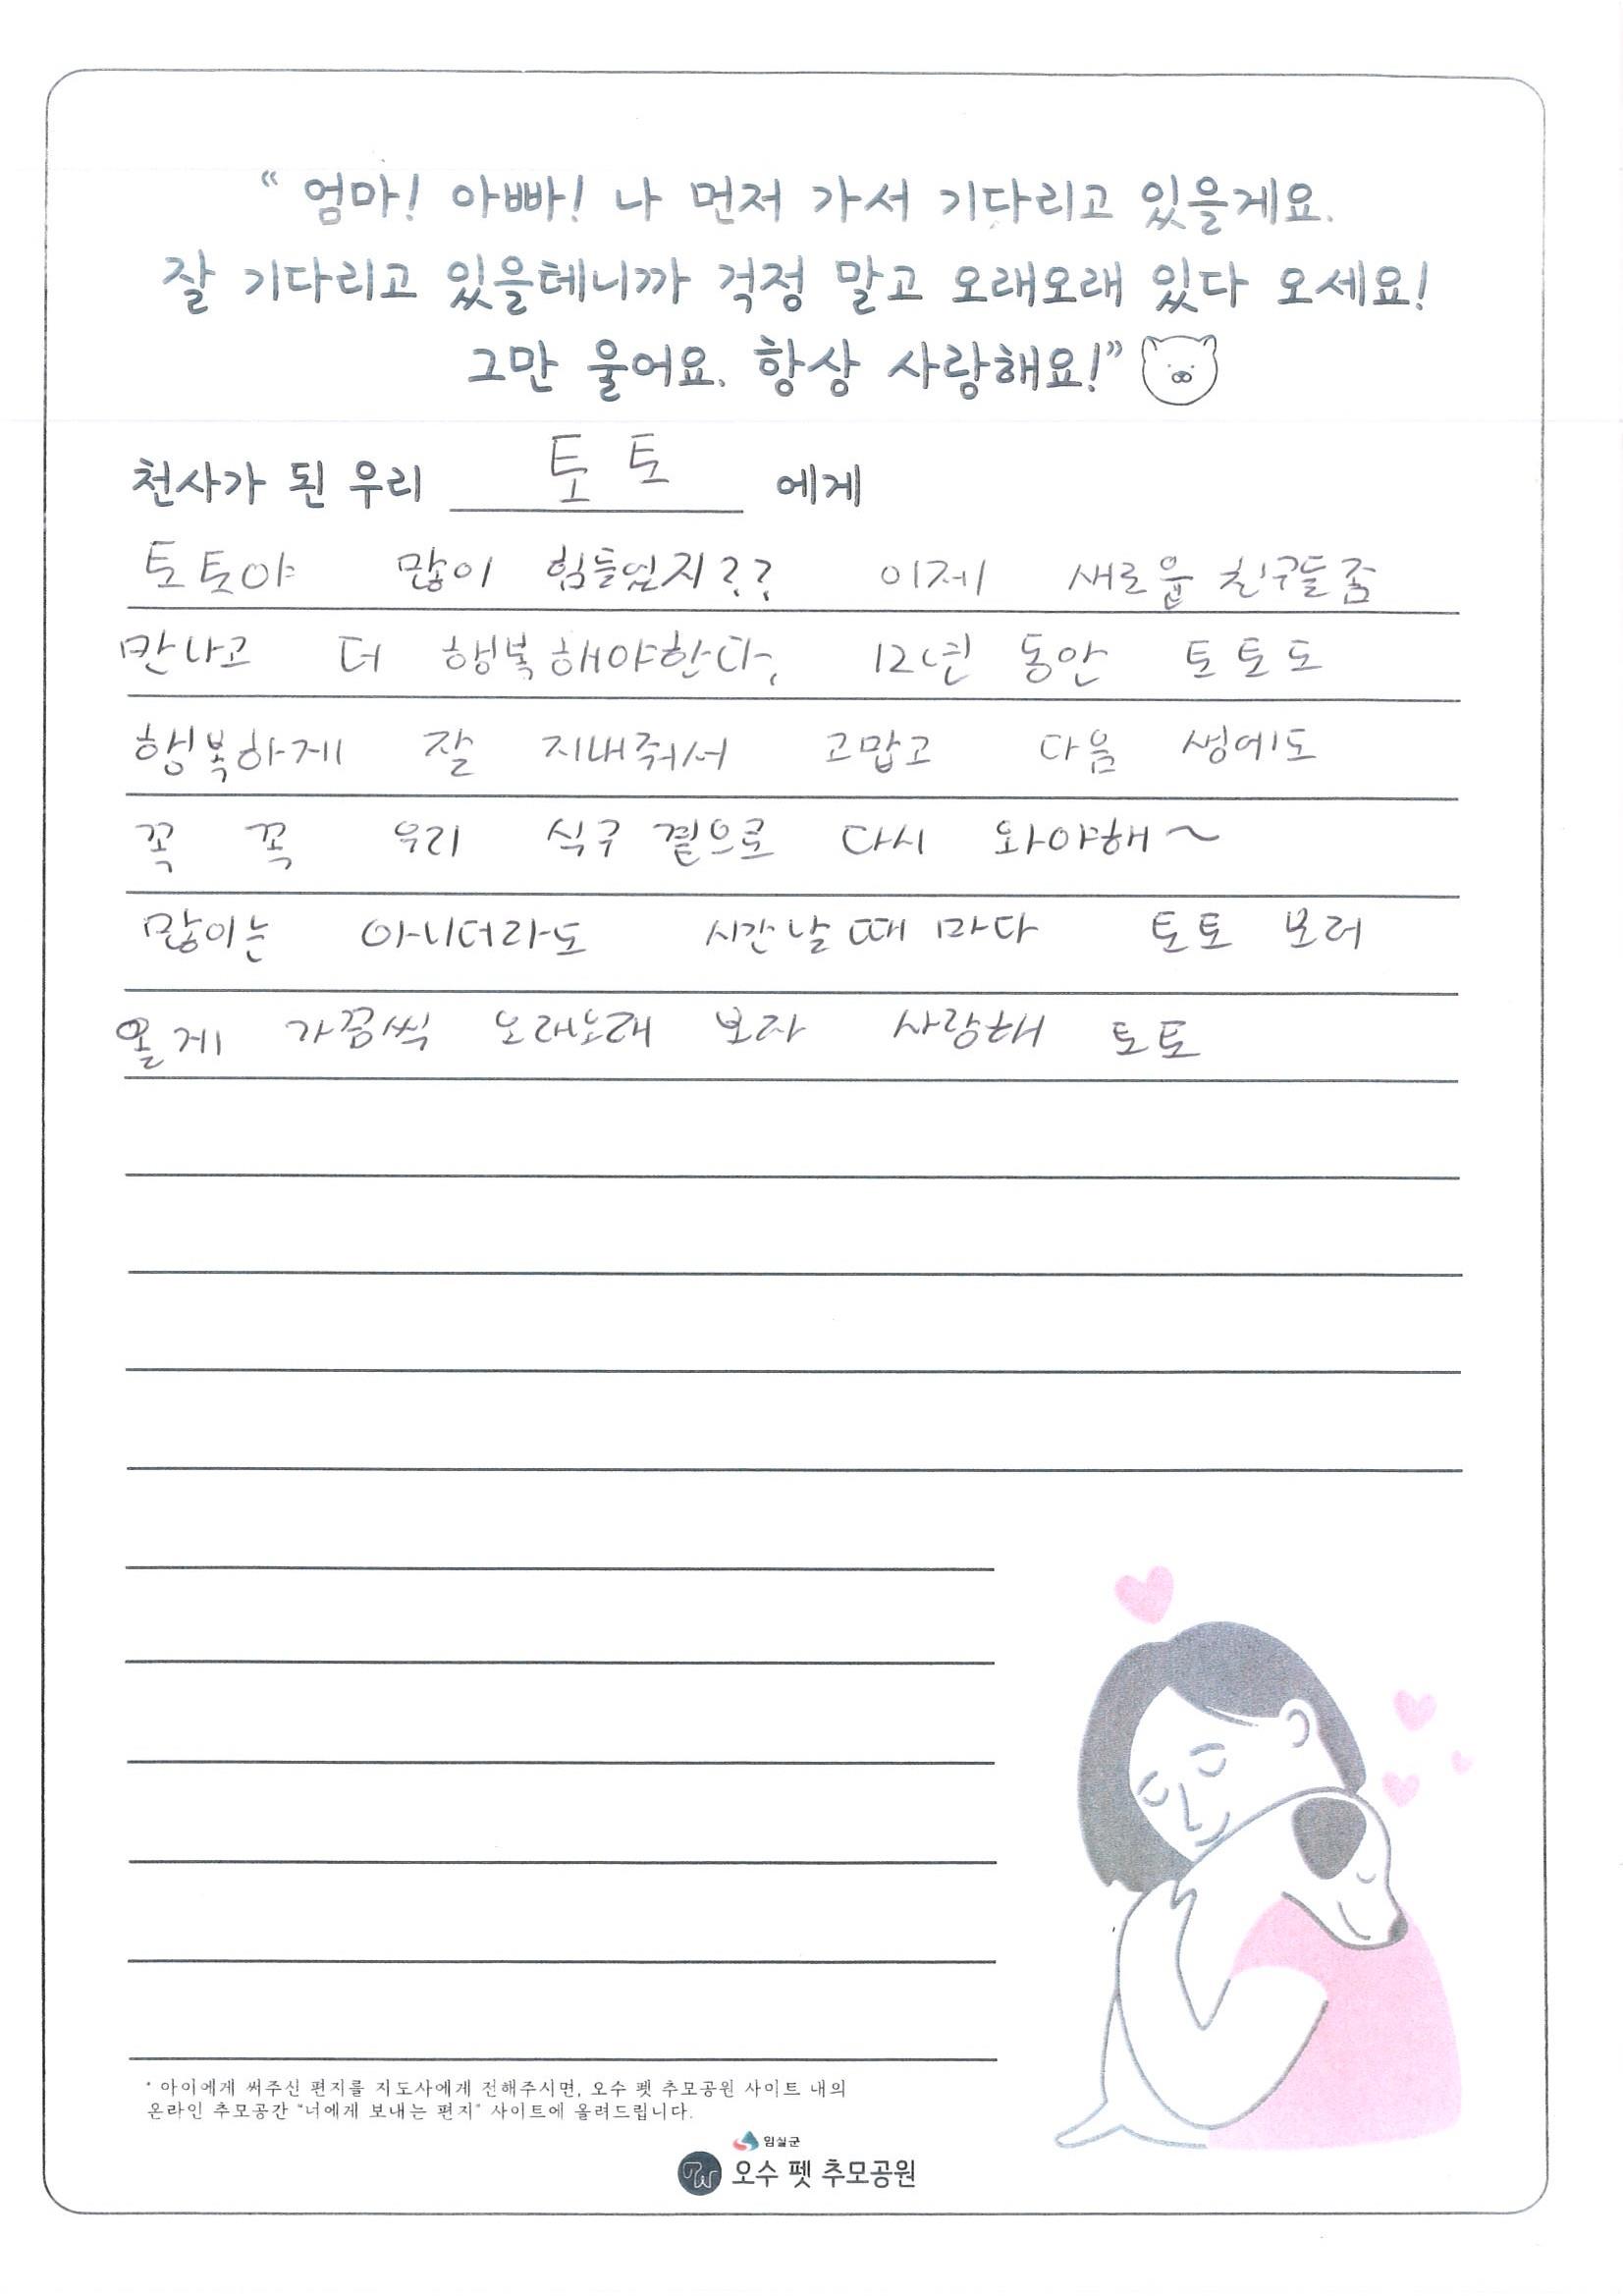 “ 엄마! 아빠! 나 먼저 가서 기다리고 있을게요.
잘 기다리고 있을테니까 걱정 말고 오래오래 있다 오세요!
그만 울어요. 항상 사랑해요!”
천사가 된 우리 토토 에게
토토야 많이 힘들었지?? 이제 새로운 친구들좀
만나고 더 행복해야한다. 12년 동안 토토도
행복하게 잘 지내줘서 고맙고 다음 생에도
꼭 꼭 우리 식구 곁으로 다시 와야해~
많이는 아니더라도 시간날때 마다 토토 보러
올게 가끔씩 오래오래 보자 사랑해 토토
* 아이에게 써주신 편지를 지도사에게 전해주시면, 오수 펫 추모공원 사이트 내의
온라인 추모공간 “너에게 보내는 편지” 사이트에 올려드립니다.
임실군
PW 오수 펫 추모공원